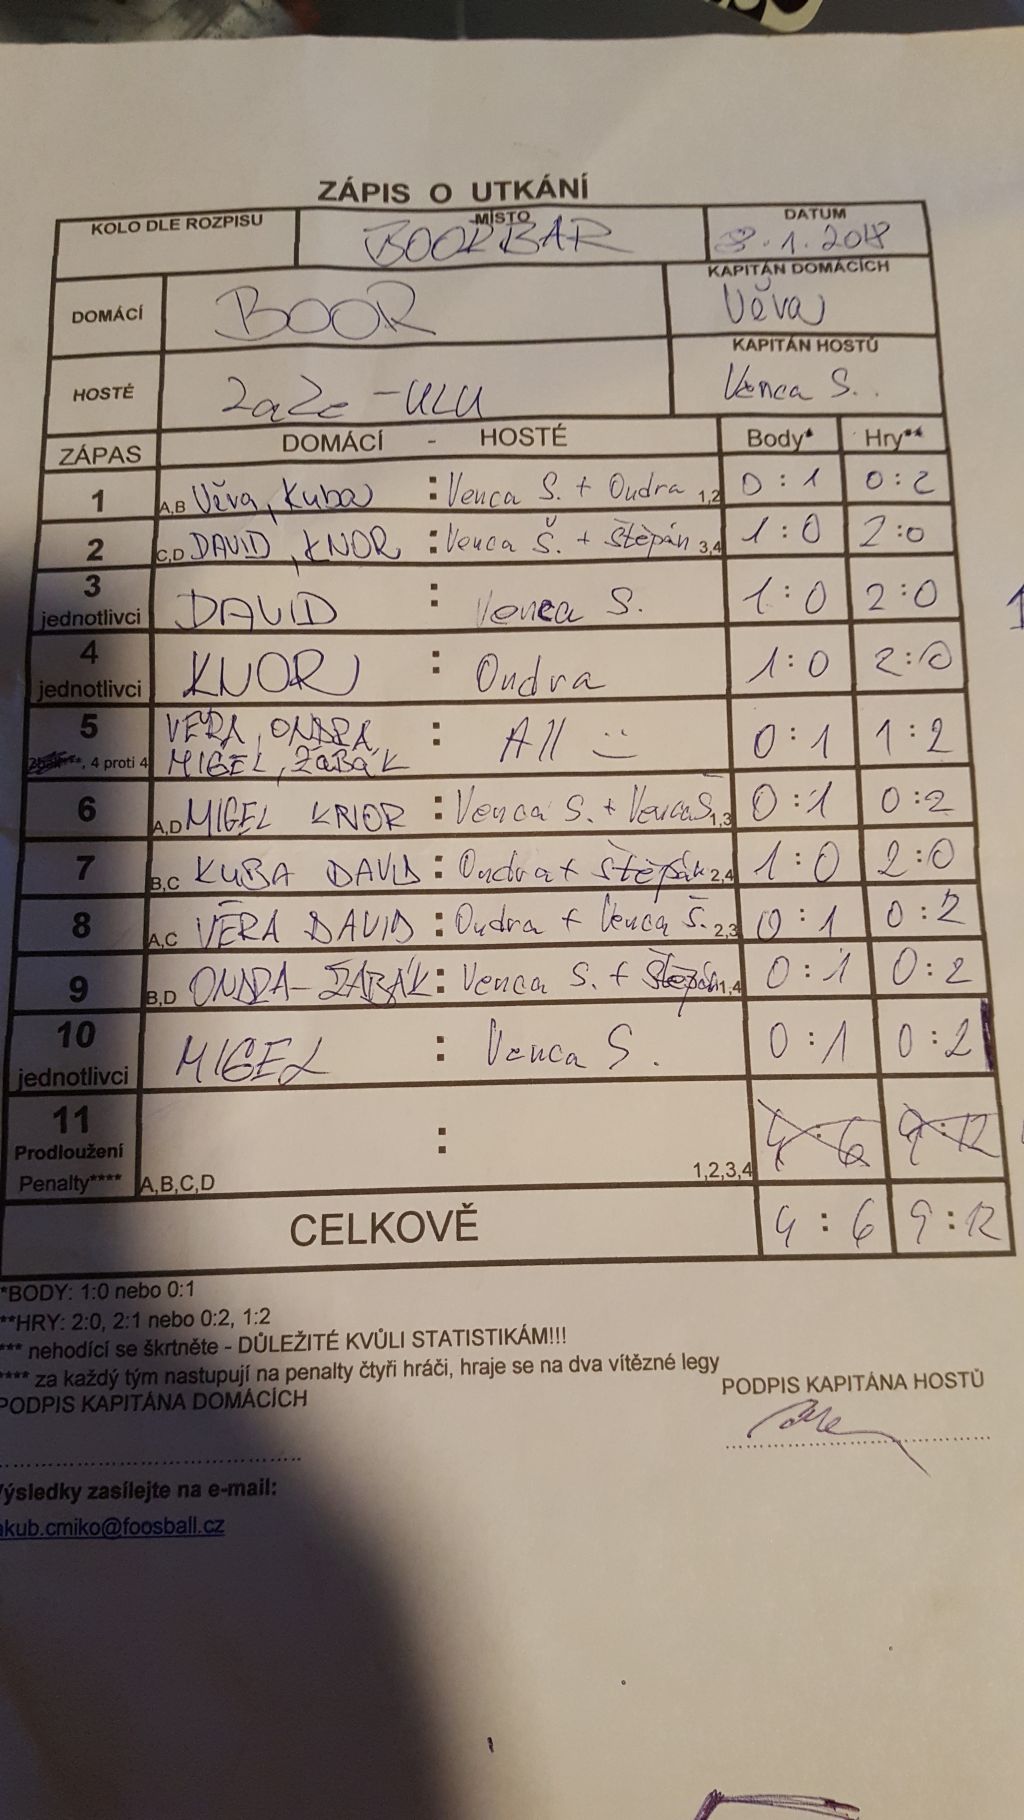 ZÁPIS O UTKÁNÍ
KOLO DLE ROZPISU MÍSTO DATUM
BOOR BAR .1.2018
KAPITÁN DOMÁCÍCH
DOMÁCÍ BOOR Věva
KAPITÁN HOSTŮ
HOSTÉ ZaZe-ULU Venca S.
ZÁPAS DOMÁCÍ - HOSTÉ Body* Hry**
1 A,B Věva, Kuba : Venca S. + Ondra 1,2 0:1 0:2
2 C,D DAVID, KNOR : Venca Š. + Štěpán 3,4 1:0 2:0
3
jednotlivci DAVID : Venca S. 1:0 2:0
4
jednotlivci KNOR : Ondra 1:0 2:0
5 VĚRA, ONDRA, : All 0:1 1:2
***, 4 proti 4 MIGEL, ŽABÁK
6 A,D MIGEL KNOR : Venca S. + Venca Š. 1,3 0:1 0:2
7 B,C KUBA DAVID : Ondra + Štěpán 2,4 1:0 2:0
8 A,C VĚRA DAVID : Ondra + Venca Š. 2,3 0:1 0:2
9 B,D ONDRA-ŽABÁK : Venca S. + Štěpán 1,4 0:1 0:2
10
jednotlivci MIGEL : Venca S. 0:1 0:2
11
Prodloužení : 4:6 9:12
Penalty**** A,B,C,D 1,2,3,4
CELKOVĚ 4:6 9:12
*BODY: 1:0 nebo 0:1
**HRY: 2:0, 2:1 nebo 0:2, 1:2
*** nehodící se škrtněte - DŮLEŽITÉ KVŮLI STATISTIKÁM!!!
**** za každý tým nastupují na penalty čtyři hráči, hraje se na dva vítězné legy
PODPIS KAPITÁNA DOMÁCÍCH PODPIS KAPITÁNA HOSTŮ
Výsledky zasílejte na e-mail:
akub.cmiko@foosball.cz